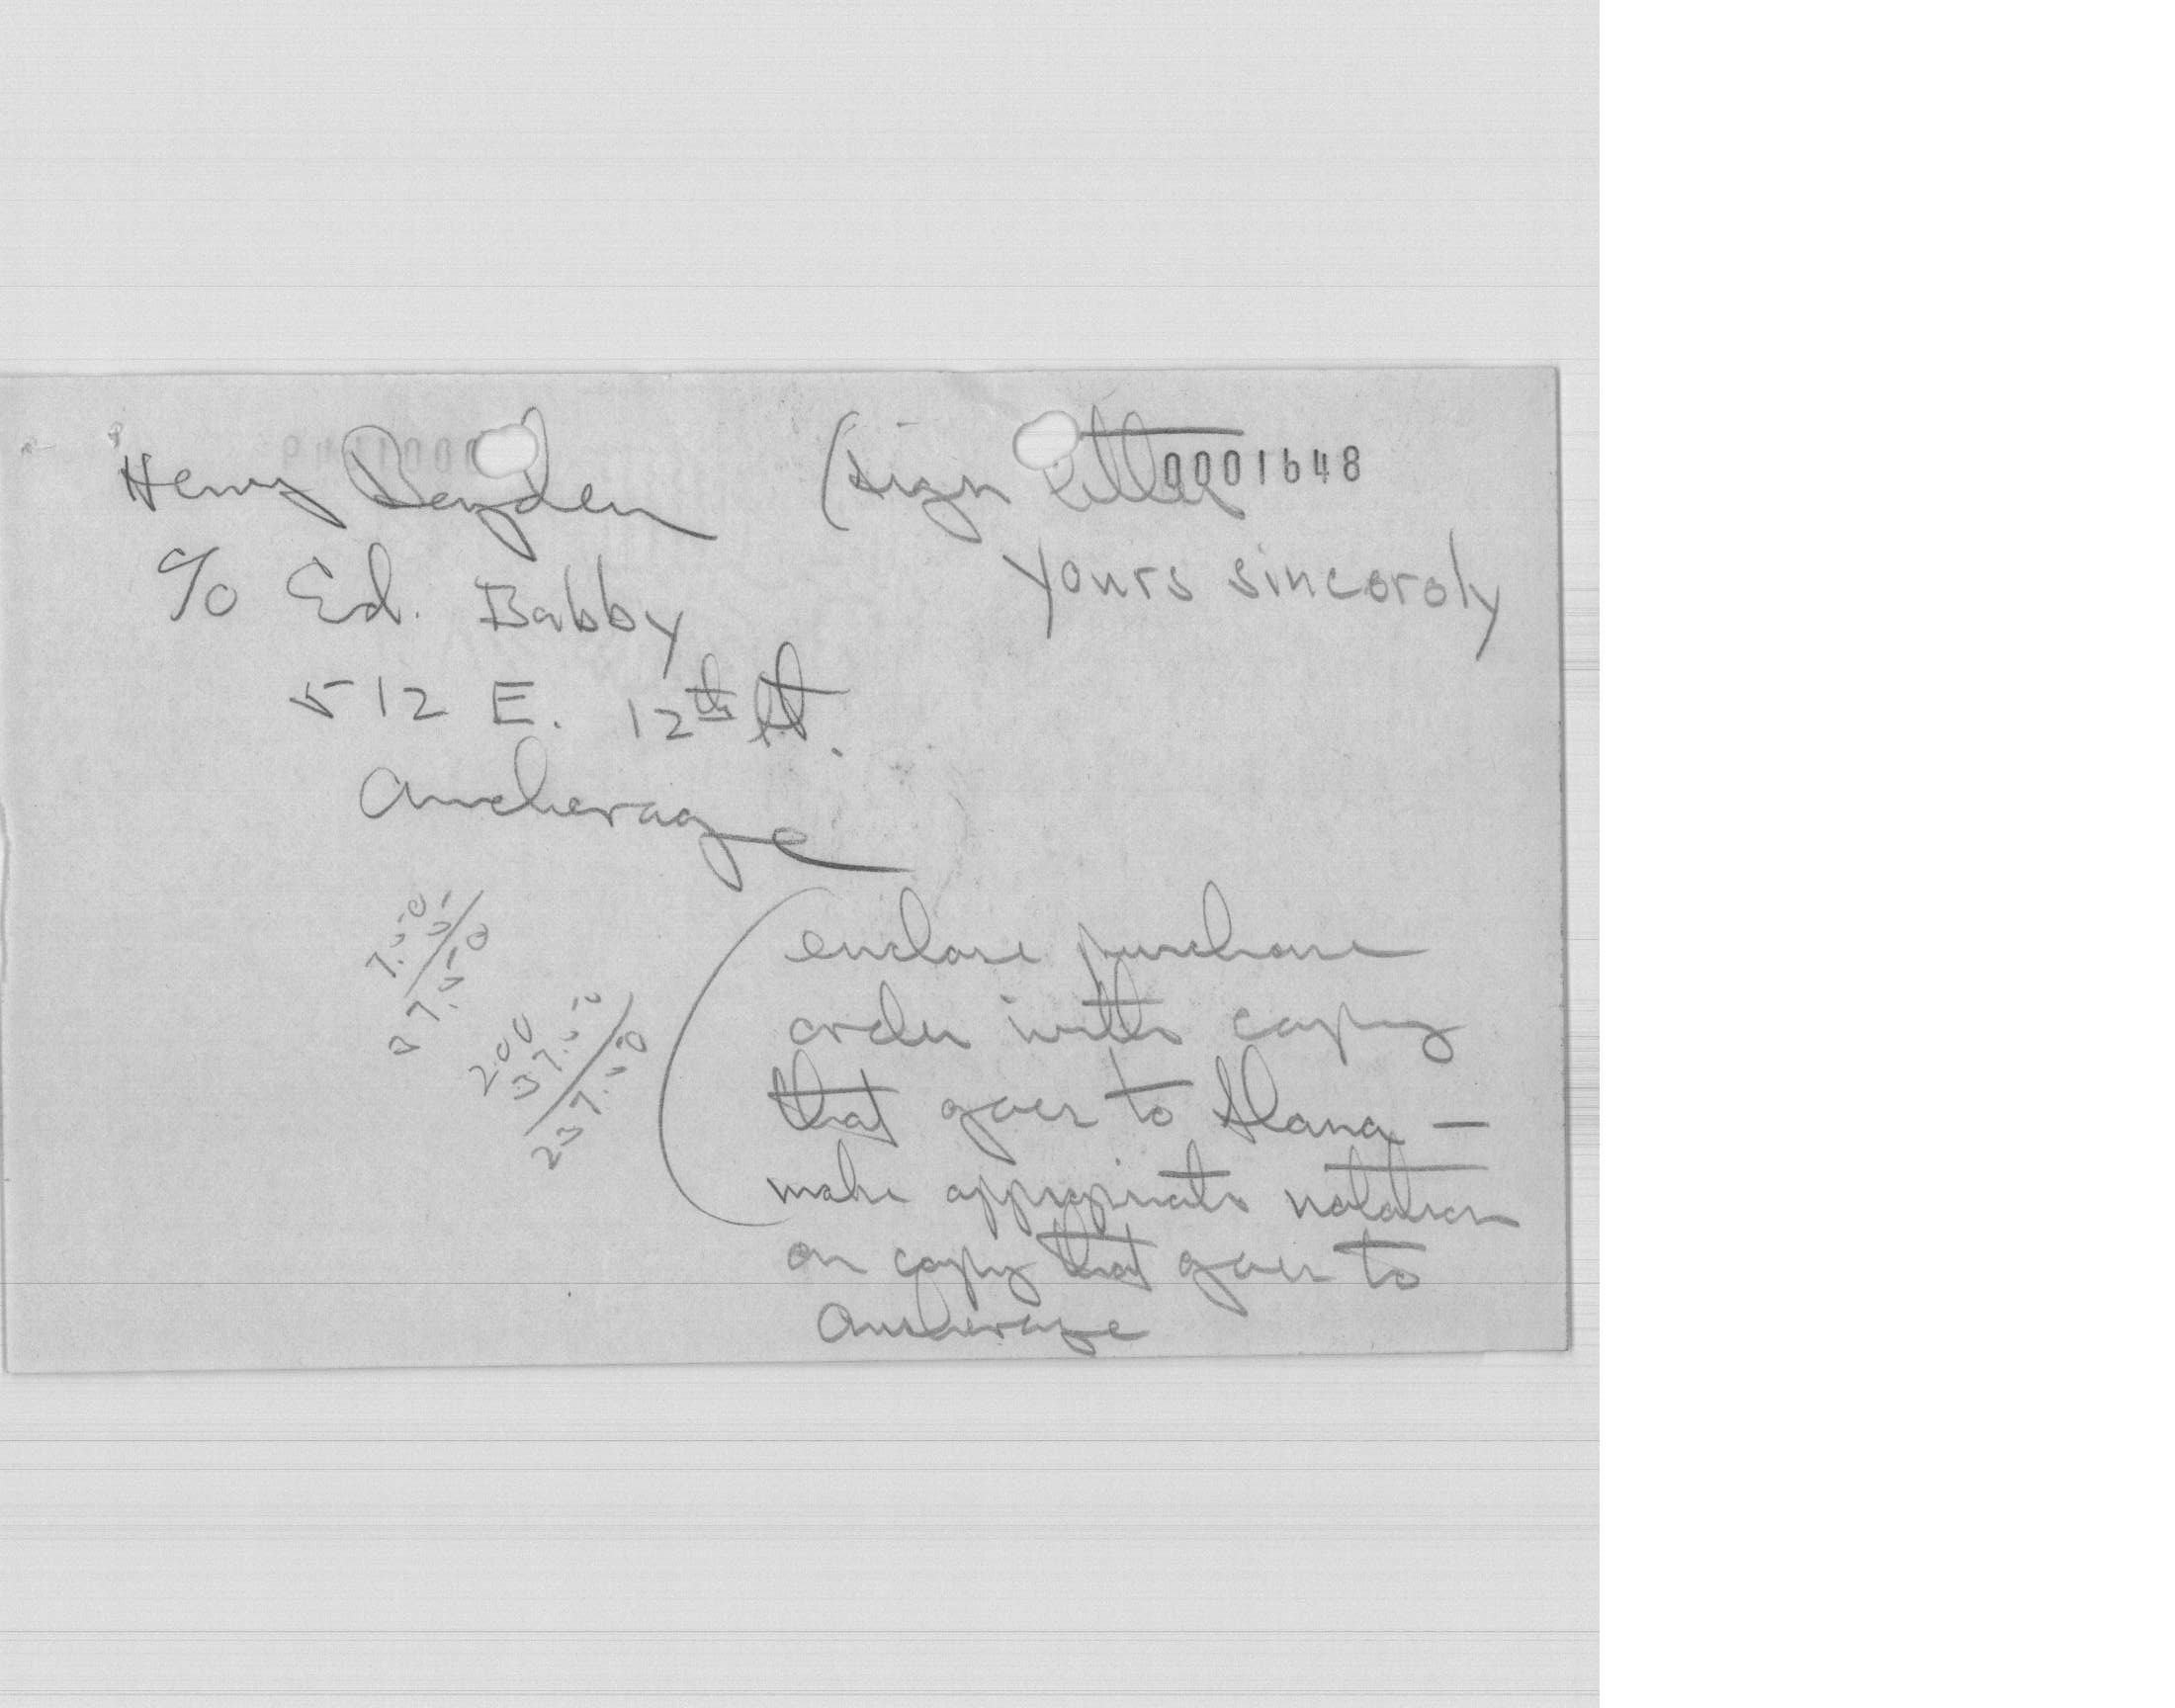 Henry Boyden
c/o Ed. Babby
512 E. 12th St.
Anchorage
(sign letter
0001648
yours sincerely
7.50
5
37.50
200
37.50
237.50
(enclose purchase
order with copy
that goes to Slana –
make appropriate notation
on copy that goes to
Anchorage